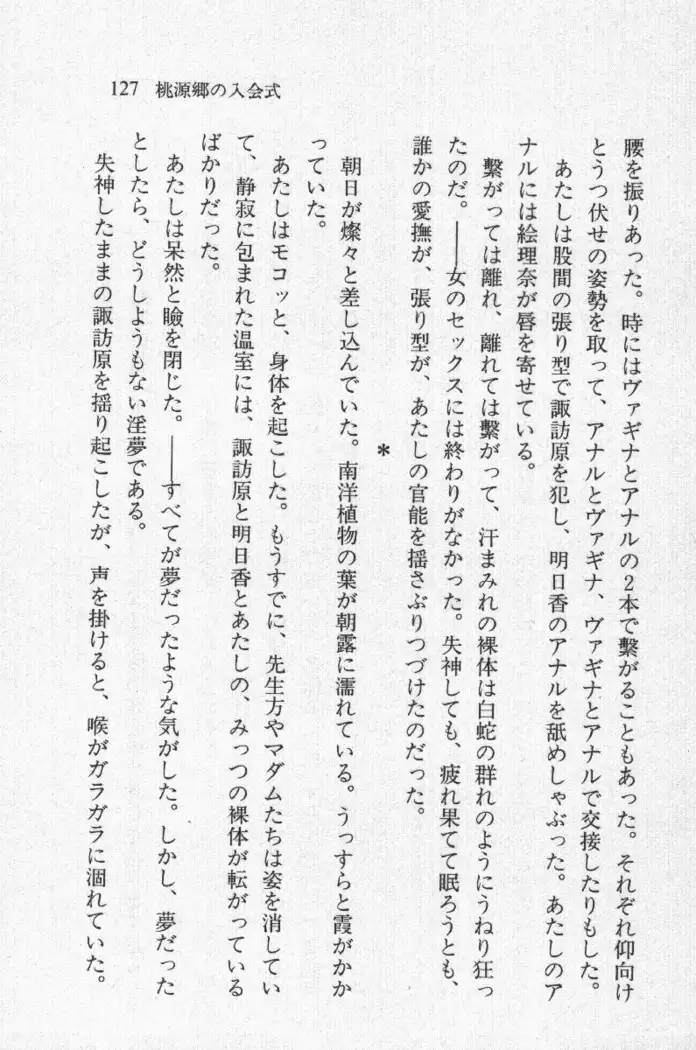 127　桃源郷の入会式
腰を振りあった。時にはヴァギナとアナルの2本で繫がることもあった。それぞれ仰向け
とうつ伏せの姿勢を取って、アナルとヴァギナ、ヴァギナとアナルで交接したりもした。
　あたしは股間の張り型で諏訪原を犯し、明日香のアナルを舐めしゃぶった。あたしのア
ナルには絵理奈が唇を寄せている。
　繫がっては離れ、離れては繫がって、汗まみれの裸体は白蛇の群れのようにうねり狂っ
たのだ。――女のセックスには終わりがなかった。失神しても、疲れ果てて眠ろうとも、
誰かの愛撫が、張り型が、あたしの官能を揺さぶりつづけたのだった。
＊
　朝日が燦々と差し込んでいた。南洋植物の葉が朝露に濡れている。うっすらと霞がかか
っていた。
　あたしはモコッと、身体を起こした。もうすでに、先生方やマダムたちは姿を消してい
て、静寂に包まれた温室には、諏訪原と明日香とあたしの、みっつの裸体が転がっている
ばかりだった。
　あたしは呆然と瞼を閉じた。――すべてが夢だったような気がした。しかし、夢だった
としたら、どうしようもない淫夢である。
　失神したままの諏訪原を揺り起こしたが、声を掛けると、喉がガラガラに涸れていた。